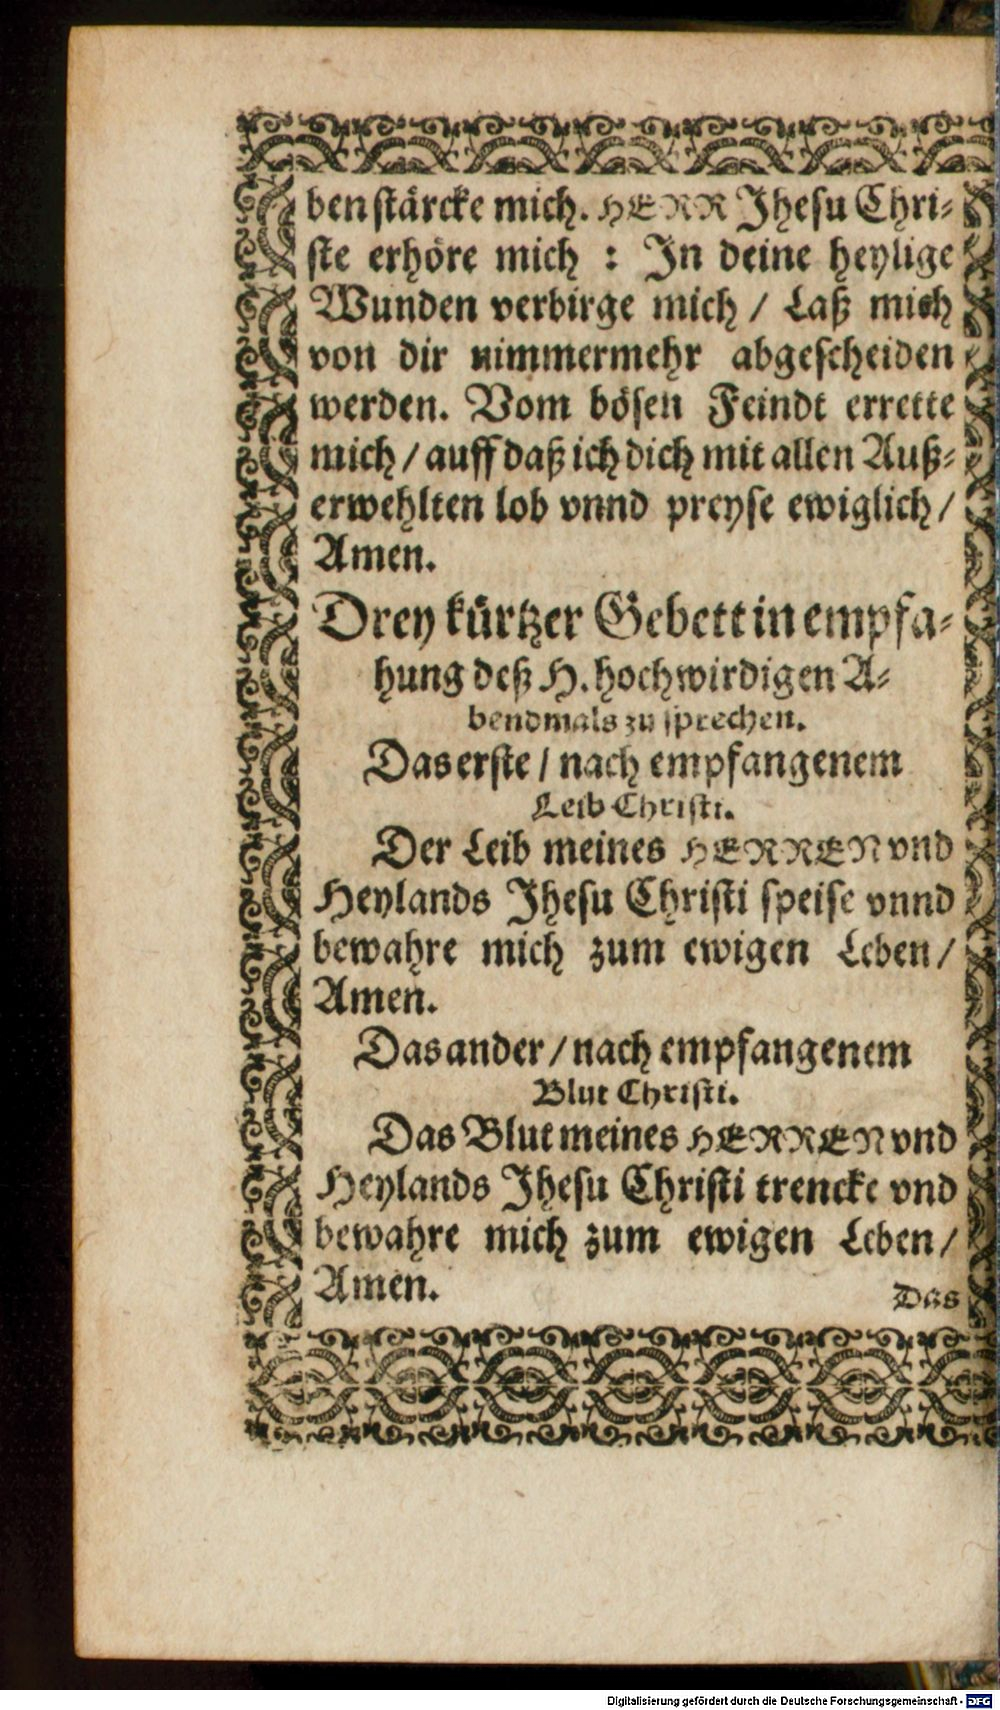 ben stärcke mich. HERR Jhesu Chri-
ste erhöre mich : In deine heylige
Wunden verbirge mich / Laß mich
von dir nimmermehr abgescheiden
werden. Vom bösen Feindt errette
mich / auff daß ich dich mit allen Auß-
erwehlten lob vnnd preyse ewiglich /
Amen.
Drey kürtzer Gebett in empfa-
hung deß H. hochwirdigen A-
bendmals zu sprechen.
Das erste / nach empfangenem
Leib Christi.
Der Leib meines HERREN vnd
Heylands Jhesu Christi speise vnnd
bewahre mich zum ewigen Leben /
Amen.
Das ander / nach empfangenem
Blut Christi.
Das Blut meines HERREN vnd
Heylands Jhesu Christi trencke vnd
bewahre mich zum ewigen Leben /
Amen.
Das
Digitalisierung gefördert durch die Deutsche Forschungsgemeinschaft - DFG